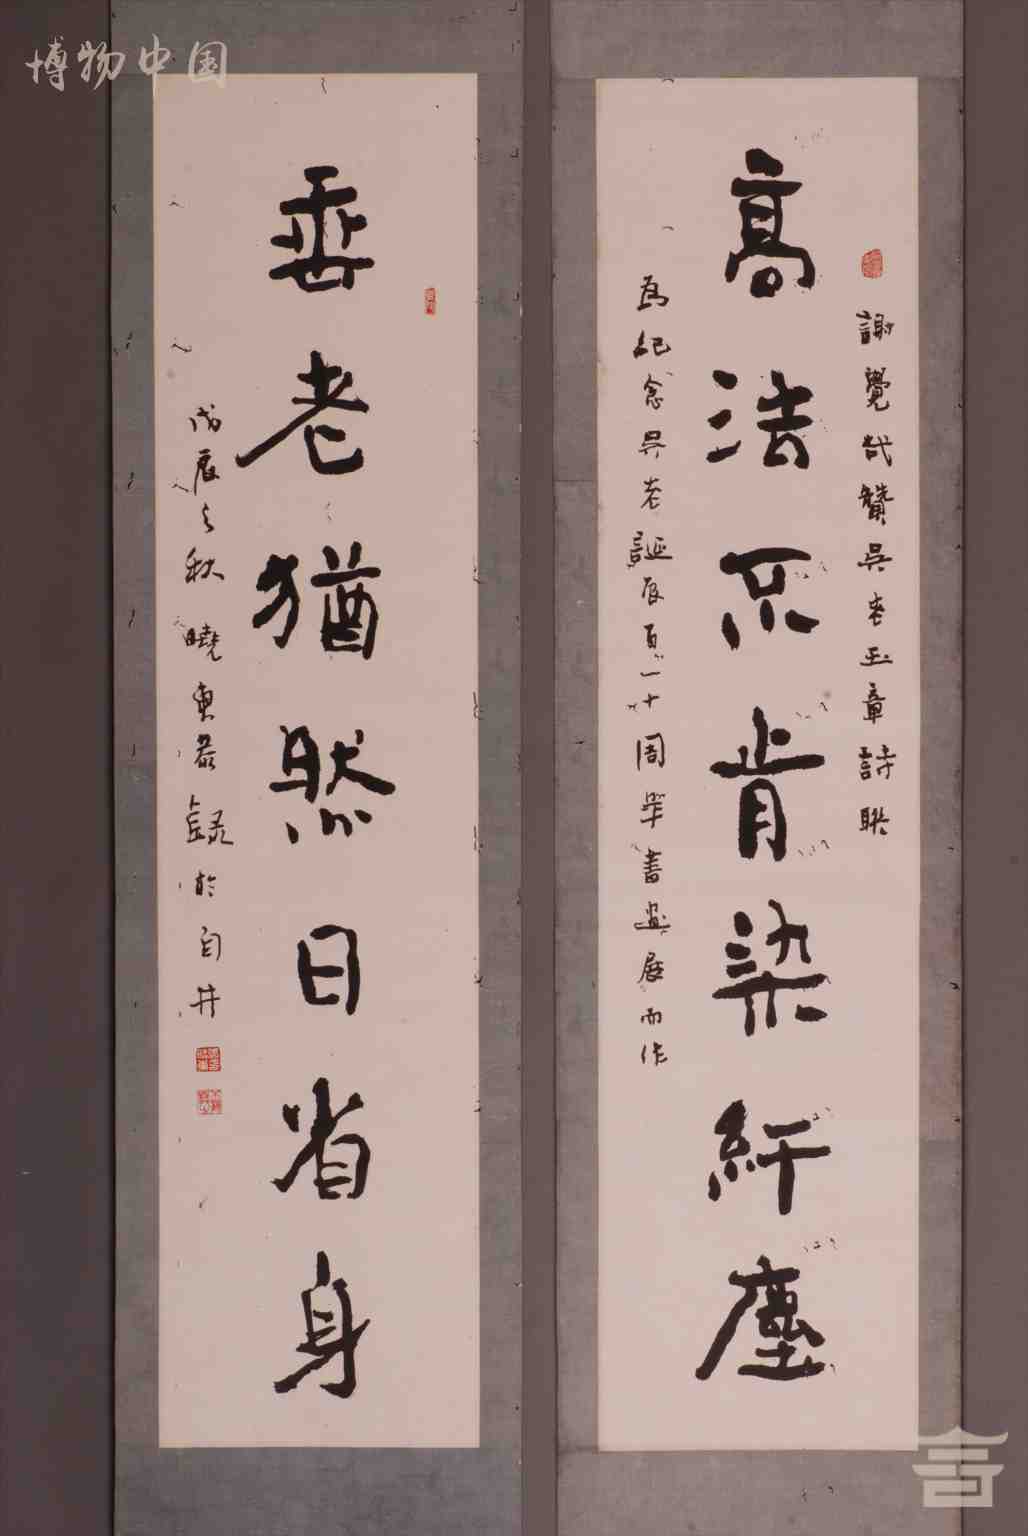 博物中国
謝覺哉贊吳老玉章詩聯
高法不肯染纤塵
為紀念吳老誕辰百一十周年書畫展而作
垂老猶然日省身
戊辰之秋曉東恭錄於自井